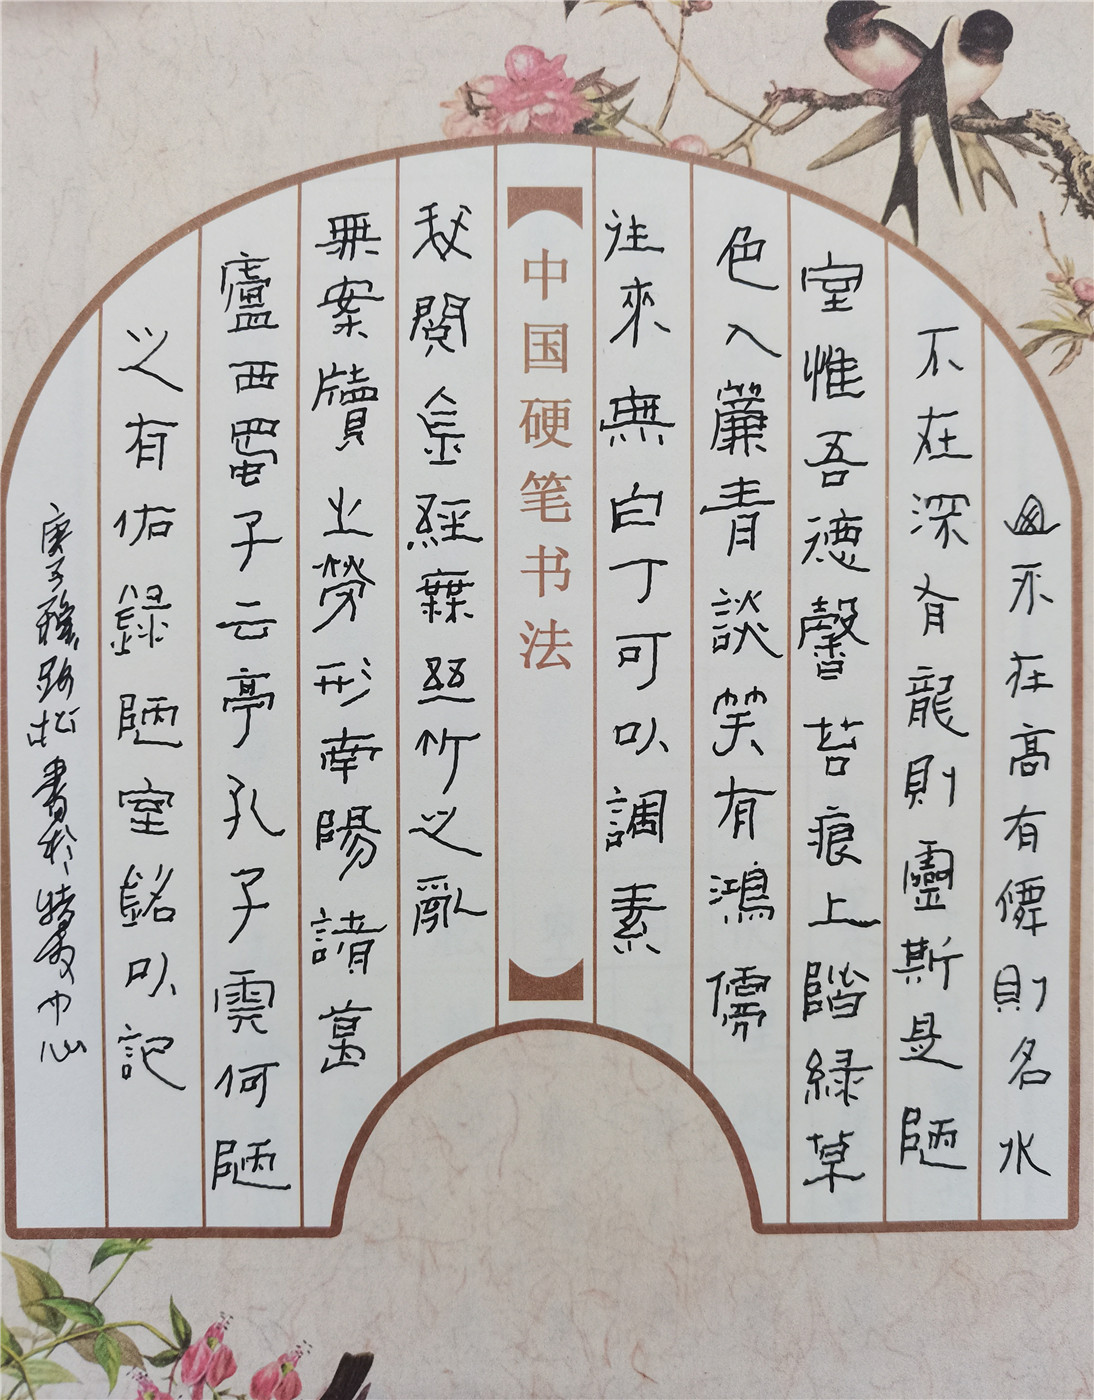 山不在高有僊則名水
不在深有龍則靈斯是陋
室惟吾德馨苔痕上階緑草
色入簾青談笑有鴻儒
往來無白丁可以調素
中国硬笔书法
閲金經無絲竹之亂
無案牘之勞形南陽諸葛
廬西蜀子云亭孔子雲何陋
之有佑録陋室銘以記
庚子路松書於中心